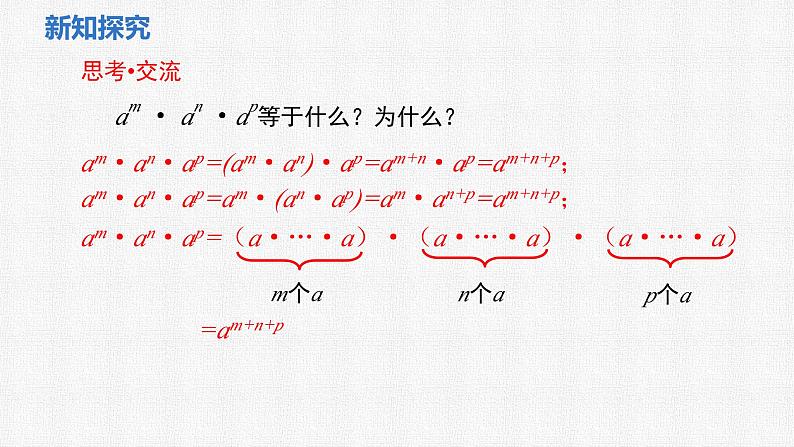 新知探究
思考•交流
aᵐ · aⁿ · aᵖ等于什么？为什么？
aᵐ·aⁿ·aᵖ=(aᵐ·aⁿ)·aᵖ=aᵐ⁺ⁿ·aᵖ=aᵐ⁺ⁿ⁺ᵖ；
aᵐ·aⁿ·aᵖ=aᵐ·(aⁿ·aᵖ)=aᵐ·aⁿ⁺ᵖ=aᵐ⁺ⁿ⁺ᵖ；
aᵐ·aⁿ·aᵖ=（a·…·a）·（a·…·a）·（a·…·a）
m个a n个a p个a
=aᵐ⁺ⁿ⁺ᵖ